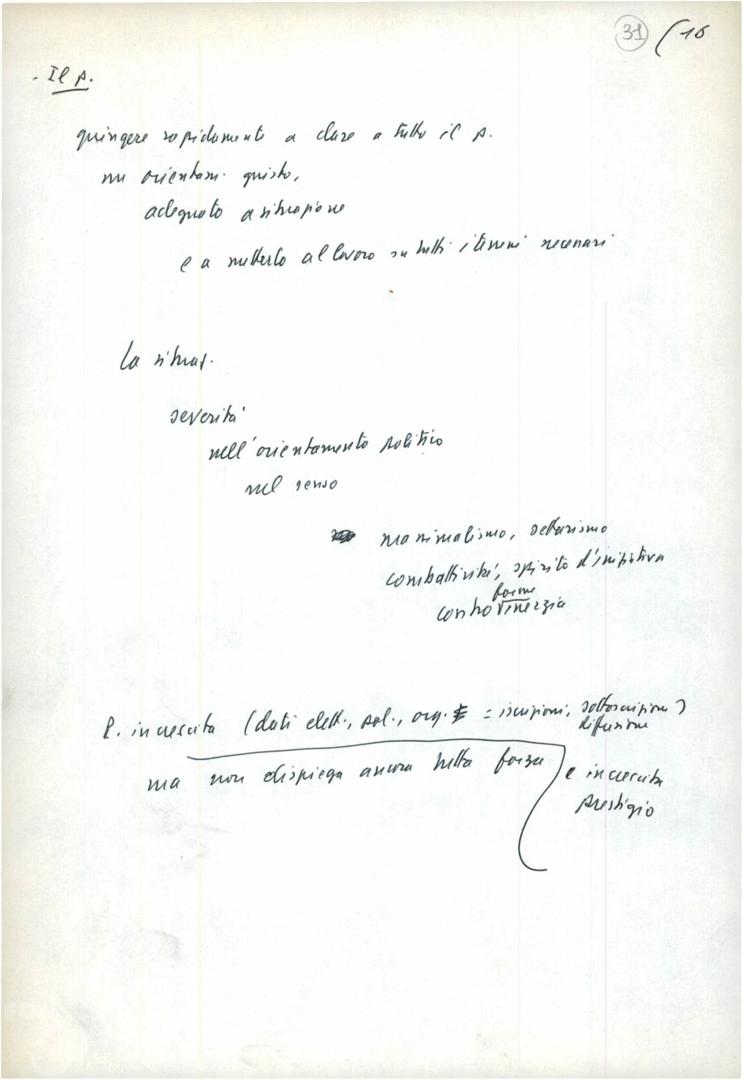 31 (16
- Il p.
giungere rapidamente a dare a tutto il p.
un orientam. giusto,
adeguato a situazione
e a metterlo al lavoro su tutti i terreni necessari
La situaz.
severità
nell'orientamento politico
nel senso
massimalismo, settarismo
combattività, spirito d'iniziativa
forme
contro inerzia
P. in crescita (dati elett., pol., org. = iscrizioni, sottoscrizione)
diffusione
ma non dispiega ancora tutta forza
e in crescita
prestigio